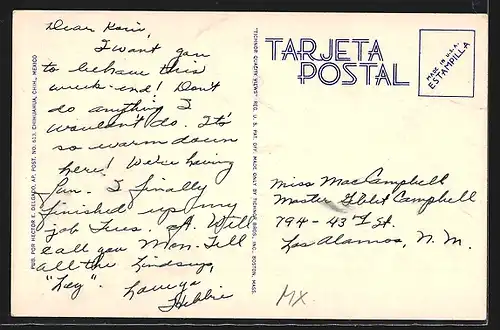 Dear Kair,
I want you
to behave this
week-end! Don't
do anything I
wouldn't do. It's
so warm down
here! We're having
fun. I finally
finished up my
job Tues. Will
call you Mon. Tell
all the Lindsays,
"Hey".
Love ya
Hebbie
PUB. POR HECTOR E. DELGADO, AP. POST. NO. 613, CHIHUAHUA, CHIH., MEXICO
"TICHNOR QUALITY VIEWS" REG. U. S. PAT. OFF. MADE ONLY BY TICHNOR BROS., INC., BOSTON, MASS.
TARJETA
POSTAL
MADE IN U.S.A.
ESTAMPILLA
Miss Mac Campbell
Master Campbell
794-43rd St.
Los Alamos, N. M.
MX